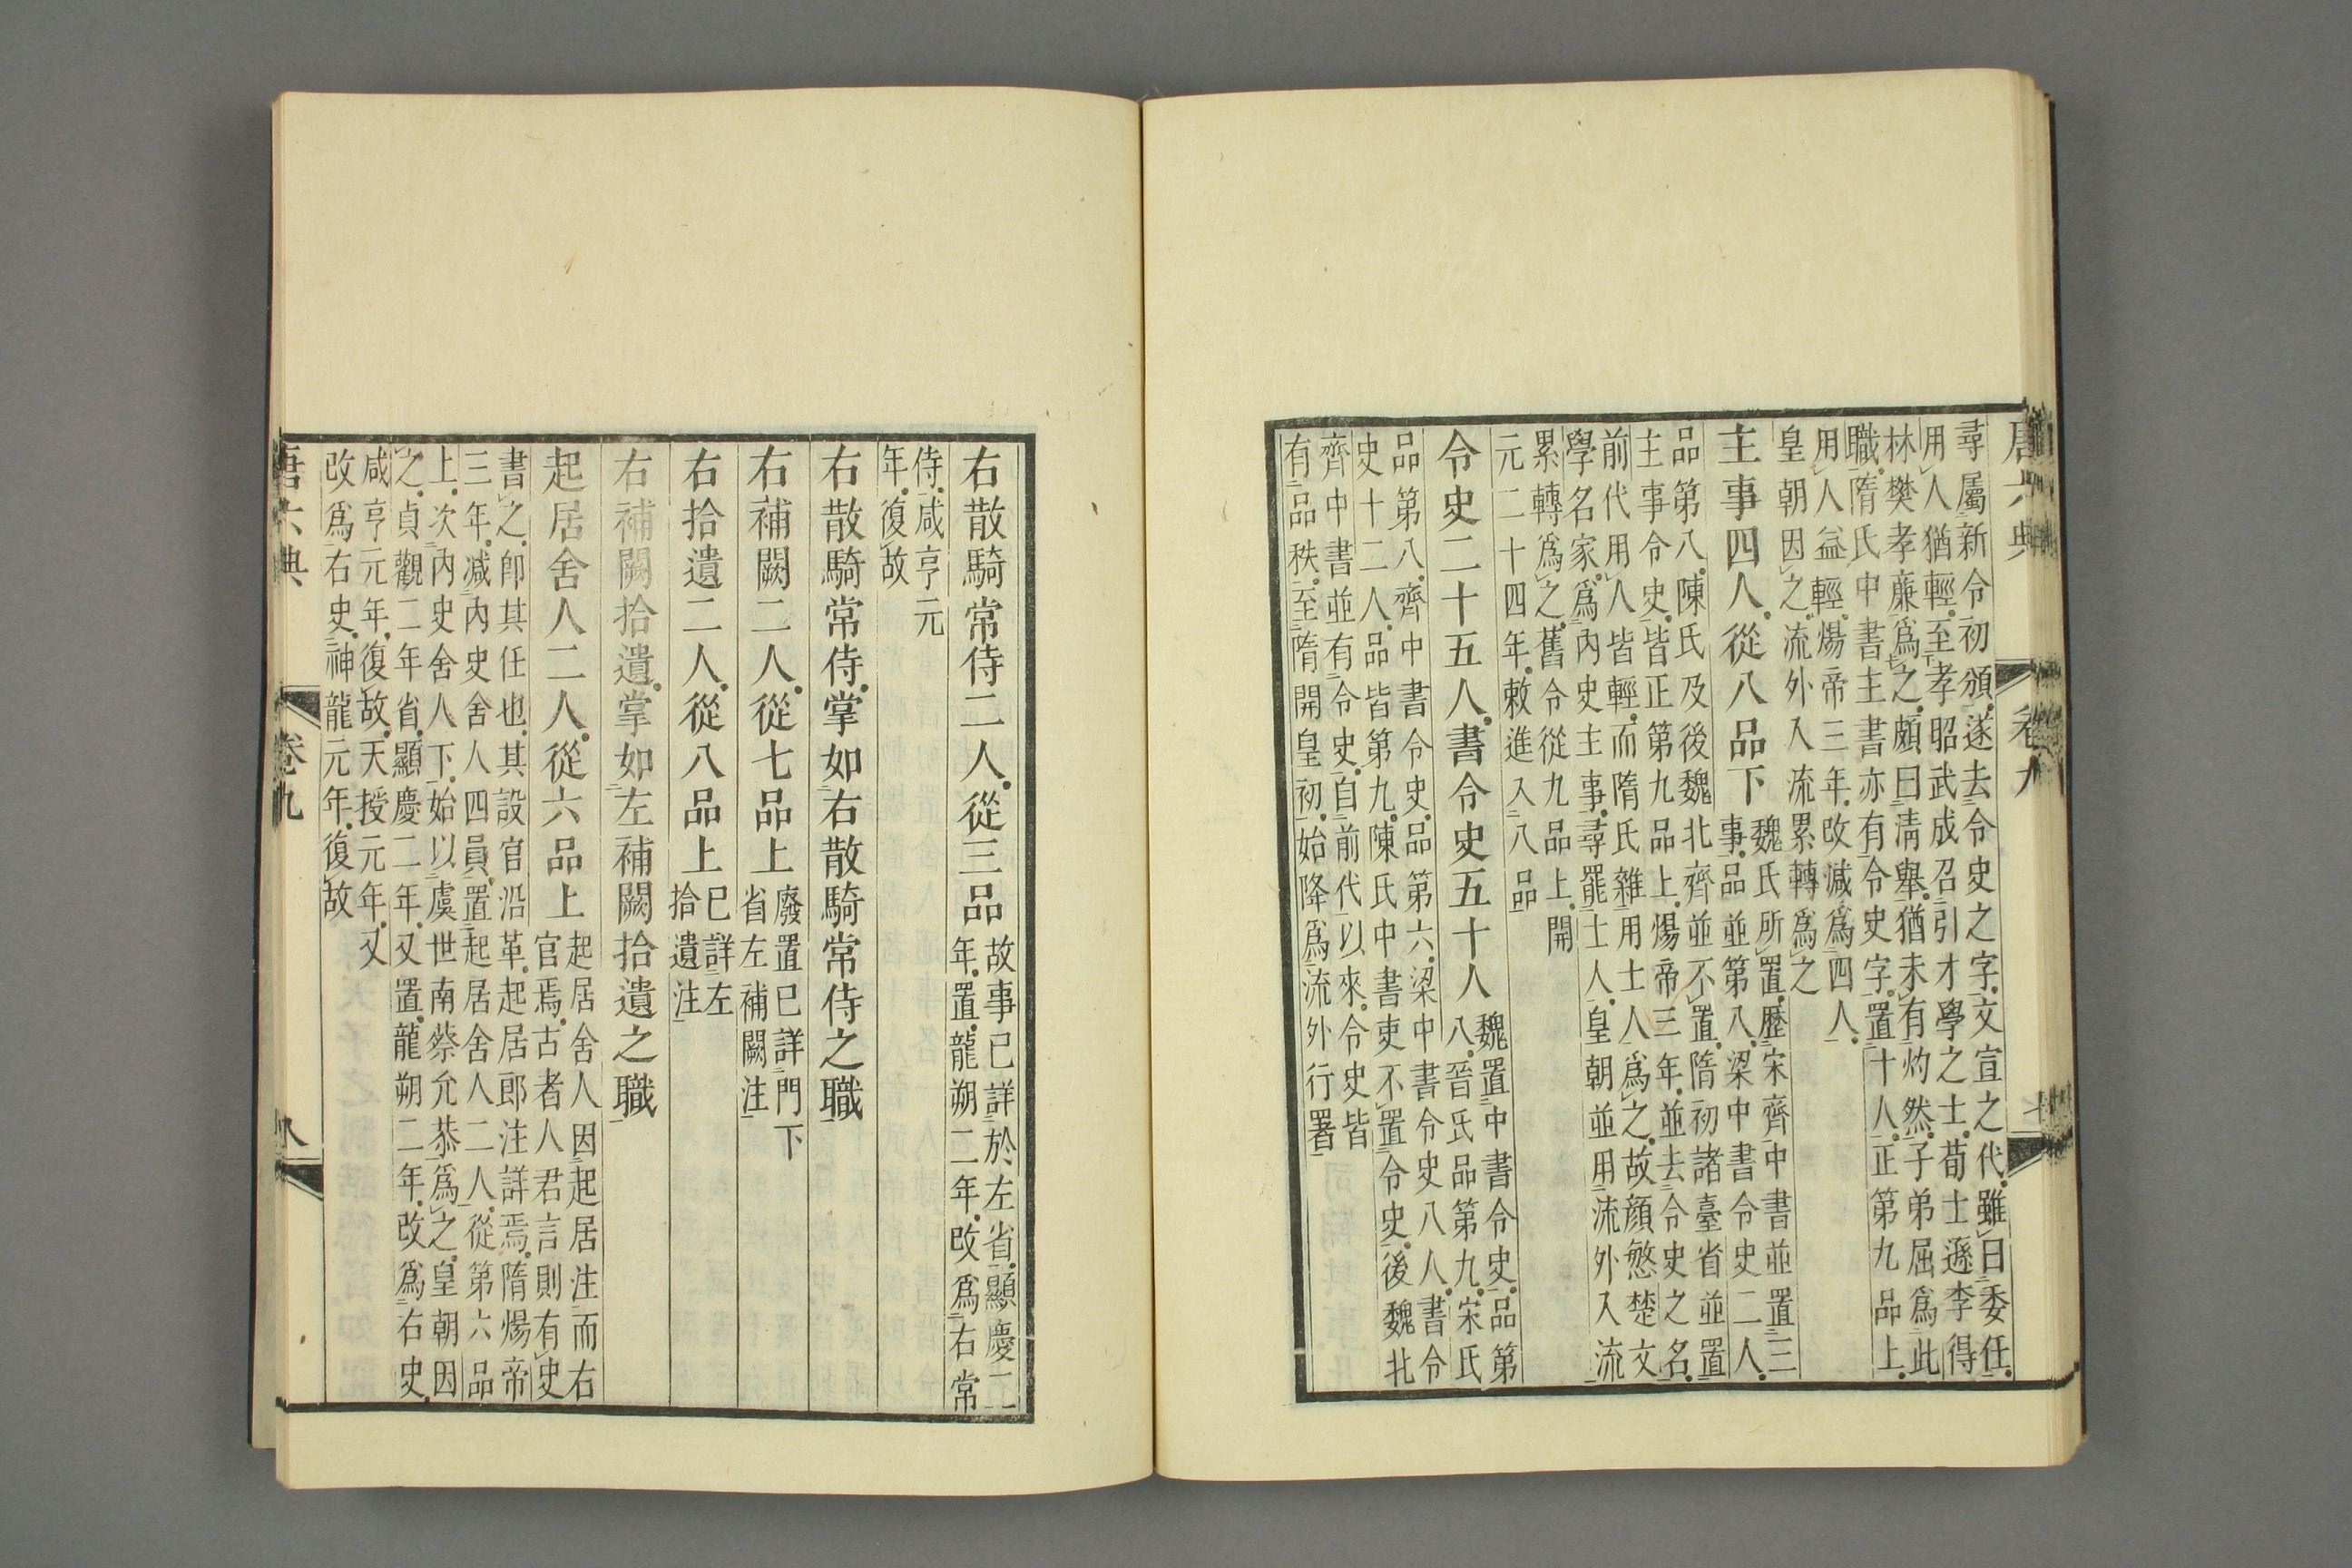 唐六典 卷九 七
尋屬新令初頒遂去令史之字文宣之代雖曰委任
用人猶輕至孝昭武成召引才學之士荀士遜李得
林樊孝廉爲之頗曰淸舉猶未有灼然子弟屈爲此
職隋氏中書主書亦有令史字置十人正第九品上
用人益輕煬帝三年改減爲四人
皇朝因之流外入流累轉爲之
主事四人從八品下
魏氏所置歷宋齊中書並置三
事品並第八梁中書令史二人
品第八陳氏及後魏北齊並不置隋初諸臺省並置
主事令史皆正第九品上煬帝三年並去令史之名
前代用人皆輕而隋氏雜用士人爲之故顔慜楚文
學名家爲內史主事尋罷士人皇朝並用流外入流
累轉爲之舊令從九品上開
元二十四年敕進入八品
令史二十五人書令史五十人
魏置中書令史品第
八晉氏品第九宋氏
品第八齊中書令史品第六梁中書令史八人書令
史十二人品皆第九陳氏中書吏不置令史後魏北
齊中書並有令史自前代以來令史皆
有品秩至隋開皇初始降爲流外行署
右散騎常侍二人從三品
故事已詳於左省顯慶二
年置龍朔二年改爲右常
侍咸亨元
年復故
右散騎常侍掌如右散騎常侍之職
右補闕二人從七品上
廢置已詳門下
省左補闕注
右拾遺二人從八品上
已詳左
拾遺注
右補闕拾遺掌如左補闕拾遺之職
起居舍人二人從六品上
起居舍人因起居注而右
官焉古者人君言則有史
書之卽其任也其設官沿革起居郎注詳焉隋煬帝
三年减內史舍人四員置起居舍人二人從第六品
上次內史舍人下始以虞世南蔡允恭爲之皇朝因
之貞觀二年省顯慶二年又置龍朔二年改爲右史
咸亨元年復故天授元年又
改爲右史神龍元年復故
唐六典 卷九 八